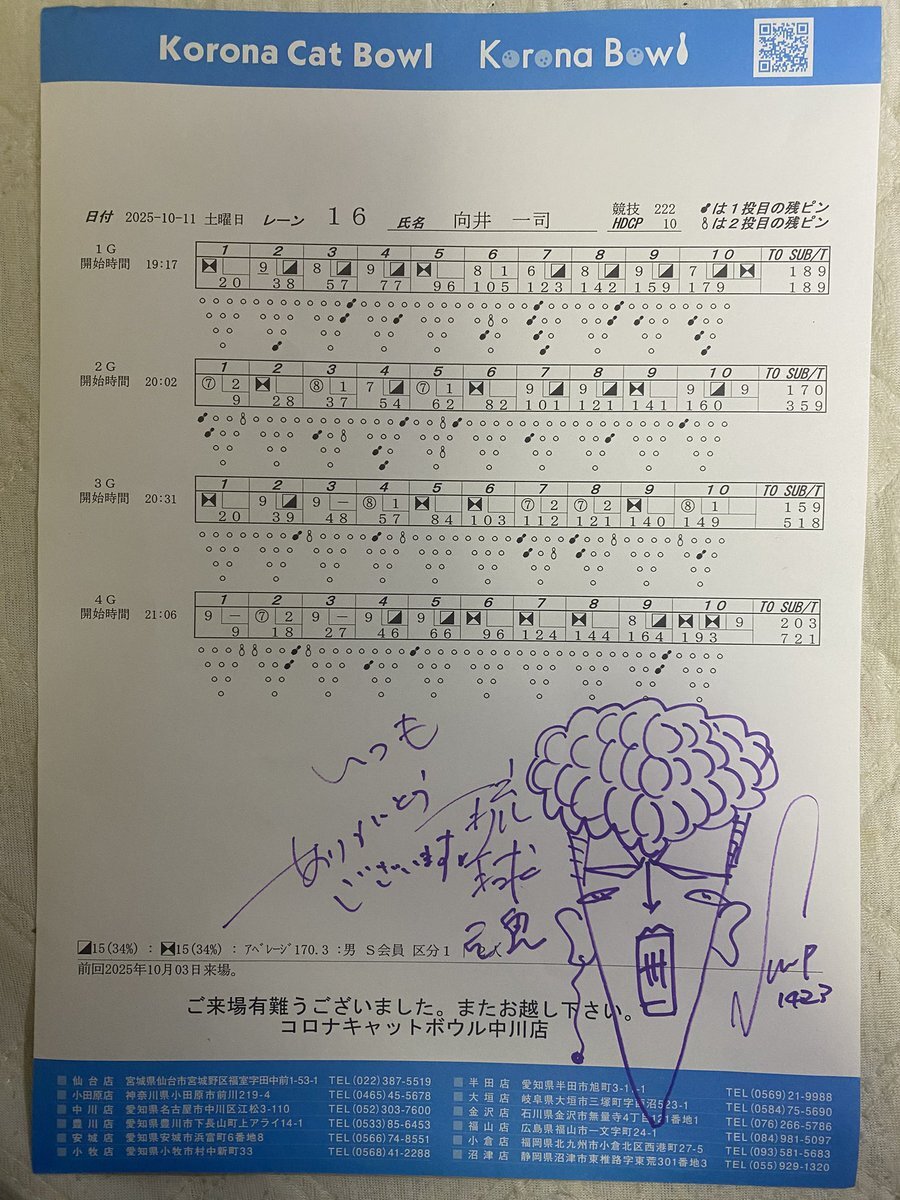 Korona Cat Bowl Korona Bowl
日付 2025-10-11 土曜日 レーン 16 氏名 向井 一司 競技 222 は1投目の残ピン
HDCP 10 は2投目の残ピン
1G 1 2 3 4 5 6 7 8 9 10 TO SUB/T
開始時間 19:17 9 8 9 8 1 6 8 9 7 189
20 38 57 77 96 105 123 142 159 179 189
2G 1 2 3 4 5 6 7 8 9 10 TO SUB/T
開始時間 20:02 ⑦ 2 ⑧ 1 7 ⑦ 1 9 9 9 9 170
9 28 37 54 62 82 101 121 141 160 359
3G 1 2 3 4 5 6 7 8 9 10 TO SUB/T
開始時間 20:31 9 9 － ⑧ 1 ⑦ 2 ⑦ 2 ⑧ 1 159
20 39 48 57 84 103 112 121 140 149 518
4G 1 2 3 4 5 6 7 8 9 10 TO SUB/T
開始時間 21:06 9 － ⑦ 2 9 － 9 9 8 9 203
9 18 27 46 66 96 124 144 164 193 721
いつも
ありがとう
ございます
球
魂
1423
15(34%) : 15(34%) : アベレージ170.3 :男 S会員 区分1
前回2025年10月03日来場。
ご来場有難うございました。またお越し下さい。
コロナキャットボウル中川店
仙台店 宮城県仙台市宮城野区福室字田中前1-53-1 TEL(022)387-5519
小田原店 神奈川県小田原市前川219-4 TEL(0465)45-5678
中川店 愛知県名古屋市中川区江松3-110 TEL(052)303-7600
豊川店 愛知県豊川市下長山町上アライ14-1 TEL(0533)85-6453
安城店 愛知県安城市浜富町6番地8 TEL(0566)74-8551
小牧店 愛知県小牧市村中新町33 TEL(0568)41-2288
半田店 愛知県半田市旭町3-1 -1 TEL(0569)21-9988
大垣店 岐阜県大垣市三塚町字 沼523-1 TEL(0584)75-5690
金沢店 石川県金沢市無量寺4丁目121番地1 TEL(076)266-5786
福山店 広島県福山市一文字町24-1 TEL(084)981-5097
小倉店 福岡県北九州市小倉北区西港町27-5 TEL(093)581-5683
沼津店 静岡県沼津市東椎路字東荒301番地3 TEL(055)929-1320